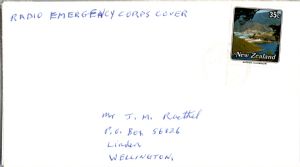 RADIO EMERGENCY CORPS COVER
35c
New Zealand
Mr J. M. Roethel
P.O. Box 56026
Linden
WELLINGTON.